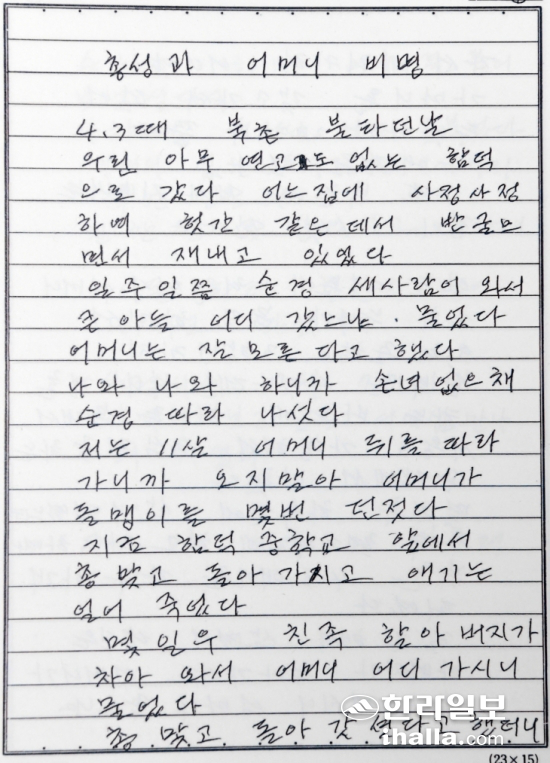 총성과 어머니 비명
4.3때 북촌 불타던날
의린 아무 연고도 없는 함덕
으로 갔다 어느집에 사정사정
하며 헛간 같은데서 반굴므
면서 재내고 있었다
일주일쯤 순경 세사람이 와서
큰아들 어디 갔느냐. 물었다
어머니는 잘모른다고 했다
나와 나와 하니까 손녀없으채
순경 따라 나섯다
저는 11살 어머니 뒤를따라
가니까 오지말아 어머니가
돌맹이를 몇번 던젓다
지금 함덕중학교 앞에서
총맞고 돌아가시고 애기는
얼어 죽었다
몇일우 친족 할아버지가
차아 와서 어머니 어디가시니
물었다
총맞고 돌아갓셨다고 했더니
한라일보
ihalla.com
(23×15)